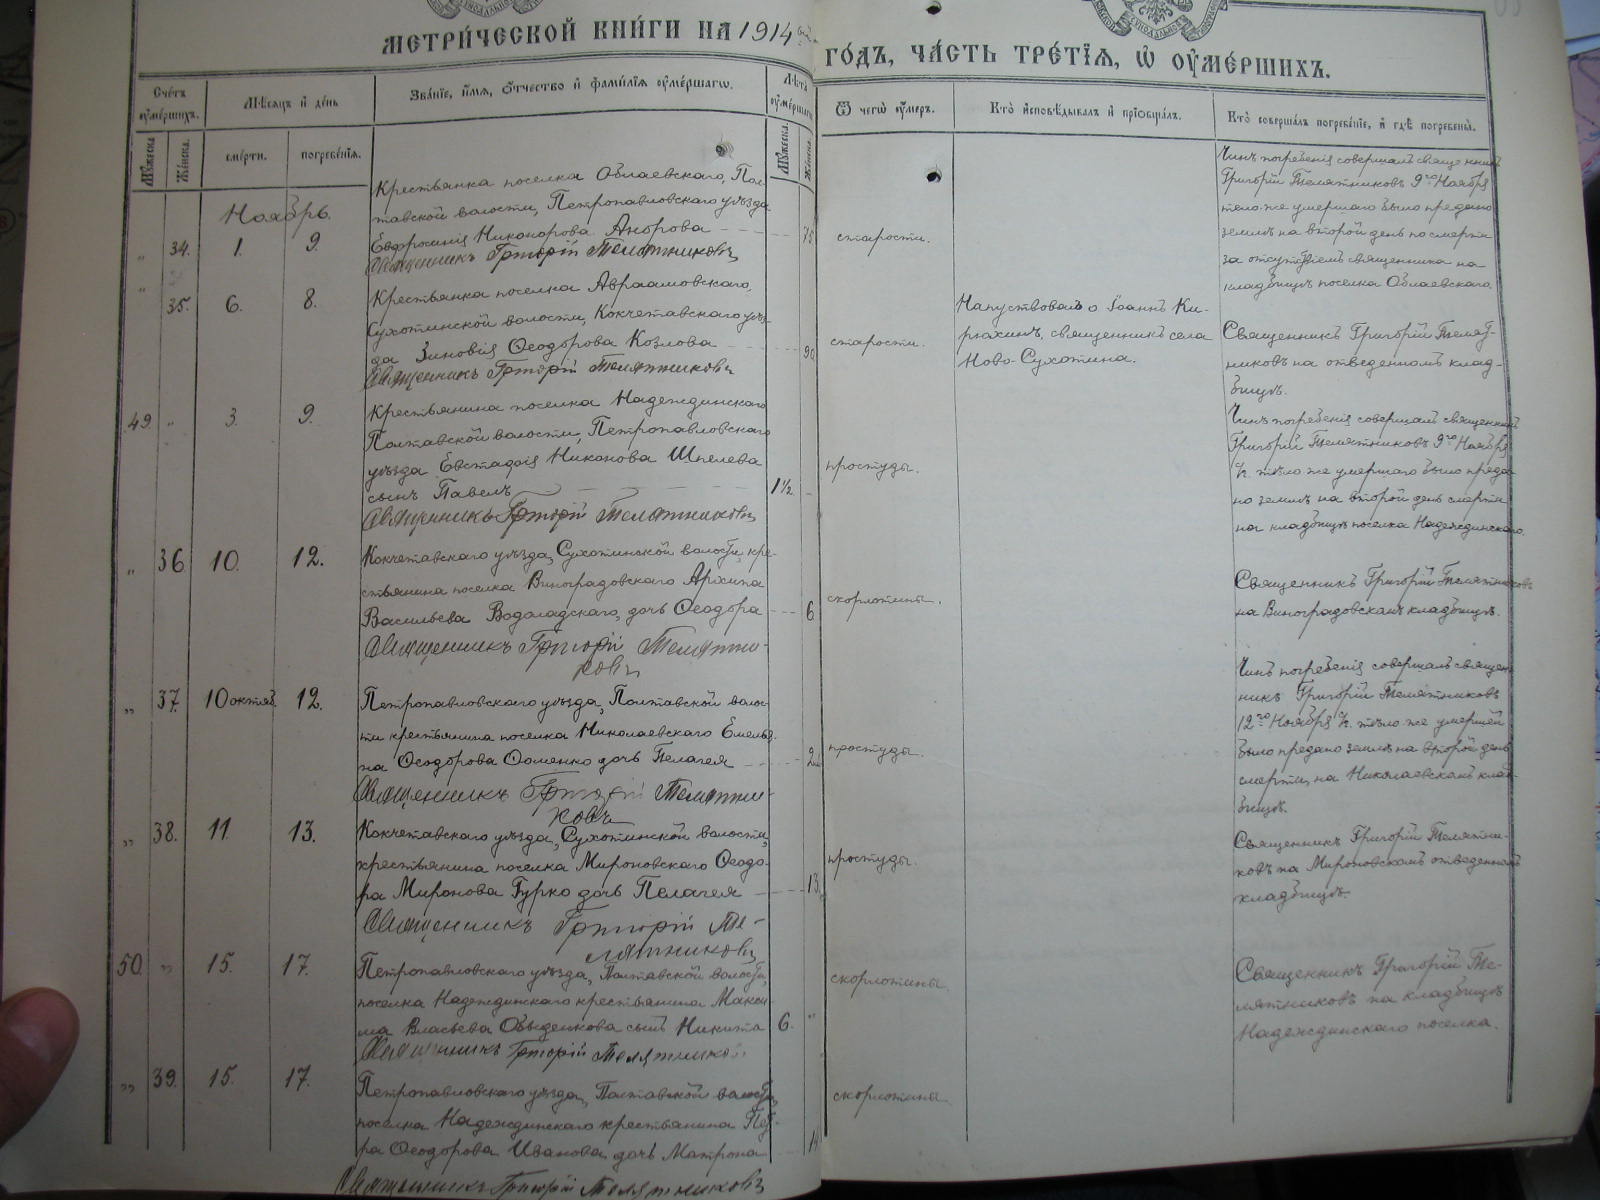 МЕТРИ́ЧЕСКОЙ КНИ́ГИ НА 1914
ГО́ДЪ, ЧА́СТЬ ТРЕ́ТІЯ, Ѡ ОУМЕ́РШИХЪ.
Счетъ оумершихъ.
Мѣсяцъ и день
Званіе, имя, отчество и фамилія оумершагѡ.
Лѣта оумершагѡ
Мужеска.
Женска.
смерти.
погребенія.
Мужеска.
Женска.
Ѿ чегѡ оумеръ.
Кто исповѣдывалъ и пріобщалъ.
Кто совершалъ погребеніе, и гдѣ погребены.
Ноябрь.
„ 34. 1. 9.
Крестьянка поселка Облаевскаго, Пол-
тавской волости, Петропавловскаго уѣзда
Евфросинія Никонорова
75
Священникъ Григорій Телятниковъ
старости.
Чинъ погребенія совершалъ священникъ
Григорій Телятниковъ 9го Ноября
тело же умершаго было предано
землѣ на второй день по смерти
за отсутствіемъ священника на
кладбищѣ поселка Облаевскаго.
„ 35. 6. 8.
Крестьянка поселка Авраамовскаго,
Сухотинской волости, Кокчетавскаго уѣз-
да Зиновія Ѳеодорова Козлова
90
Священникъ Григорій Телятниковъ
старости.
Напутствовалъ о Іоаннъ Ки-
рюхинъ, священникъ села
Ново-Сухотина.
Священникъ Григорій Телят-
никовъ на отведенномъ клад-
бищѣ.
49. „ 3. 9.
Крестьянина поселка Надеждинскаго
Полтавской волости, Петропавловскаго
уѣзда Евстафія Никонова Шпелева
сынъ Павелъ
1½.
Священникъ Григорій Телятниковъ
простуды.
Чинъ погребенія совершалъ священникъ
Григорій Телятниковъ 9го Ноября
с/г. тѣло же умершаго было преда-
но землѣ на второй день смерти
на кладбищѣ поселка Надеждинскаго.
„ 36 10. 12.
Кокчетавскаго уѣзда, Сухотинской волости, кре-
стьянина поселка Виноградовскаго Архипа
Васильева Водоладскаго, дочь Ѳеодора
6
Священникъ Григорій Телятни-
ковъ
скорлотины.
Священникъ Григорій Телятниковъ
на Виноградовскомъ кладбищѣ.
„ 37. 10 октяб. 12.
Петропавловскаго уѣзда, Полтавской волос-
ти крестьянина поселка Николаевскаго Емелья-
на Ѳеодорова Ѳоменко дочь Пелагея
Священникъ Григорій Телятни-
ковъ
простуды.
Чинъ погребенія совершалъ священ-
никъ Григорій Телятниковъ
12го Ноября с/г. тѣло же умершей
было предано землѣ на второй день
смерти, на Николаевскомъ клад-
бищѣ.
„ 38. 11. 13.
Кокчетавскаго уѣзда, Сухотинской волости,
крестьянина поселка Мироновскаго Ѳеодо-
ра Миронова Гурко дочь Пелагея
13.
Священникъ Григорій Те-
лятниковъ
простуды.
Священникъ Григорій Телятни-
ковъ на Мироновскомъ отведенномъ
кладбищѣ.
50. „ 15. 17.
Петропавловскаго уѣзда, Полтавской волости,
поселка Надеждинскаго крестьянина Макси-
ма Власьева Обыденкова сынъ Никита
6. „
Священникъ Григорій Телятников
скорлотины.
Священникъ Григорій Те-
лятниковъ на кладбищѣ
Надеждинскаго поселка.
„ 39. 15. 17.
Петропавловскаго уѣзда, Полтавской волости,
поселка Надеждинскаго крестьянина Пет-
ра Ѳеодорова Иванова дочь Матрона
Священникъ Григорій Телятниковъ
скорлотины.